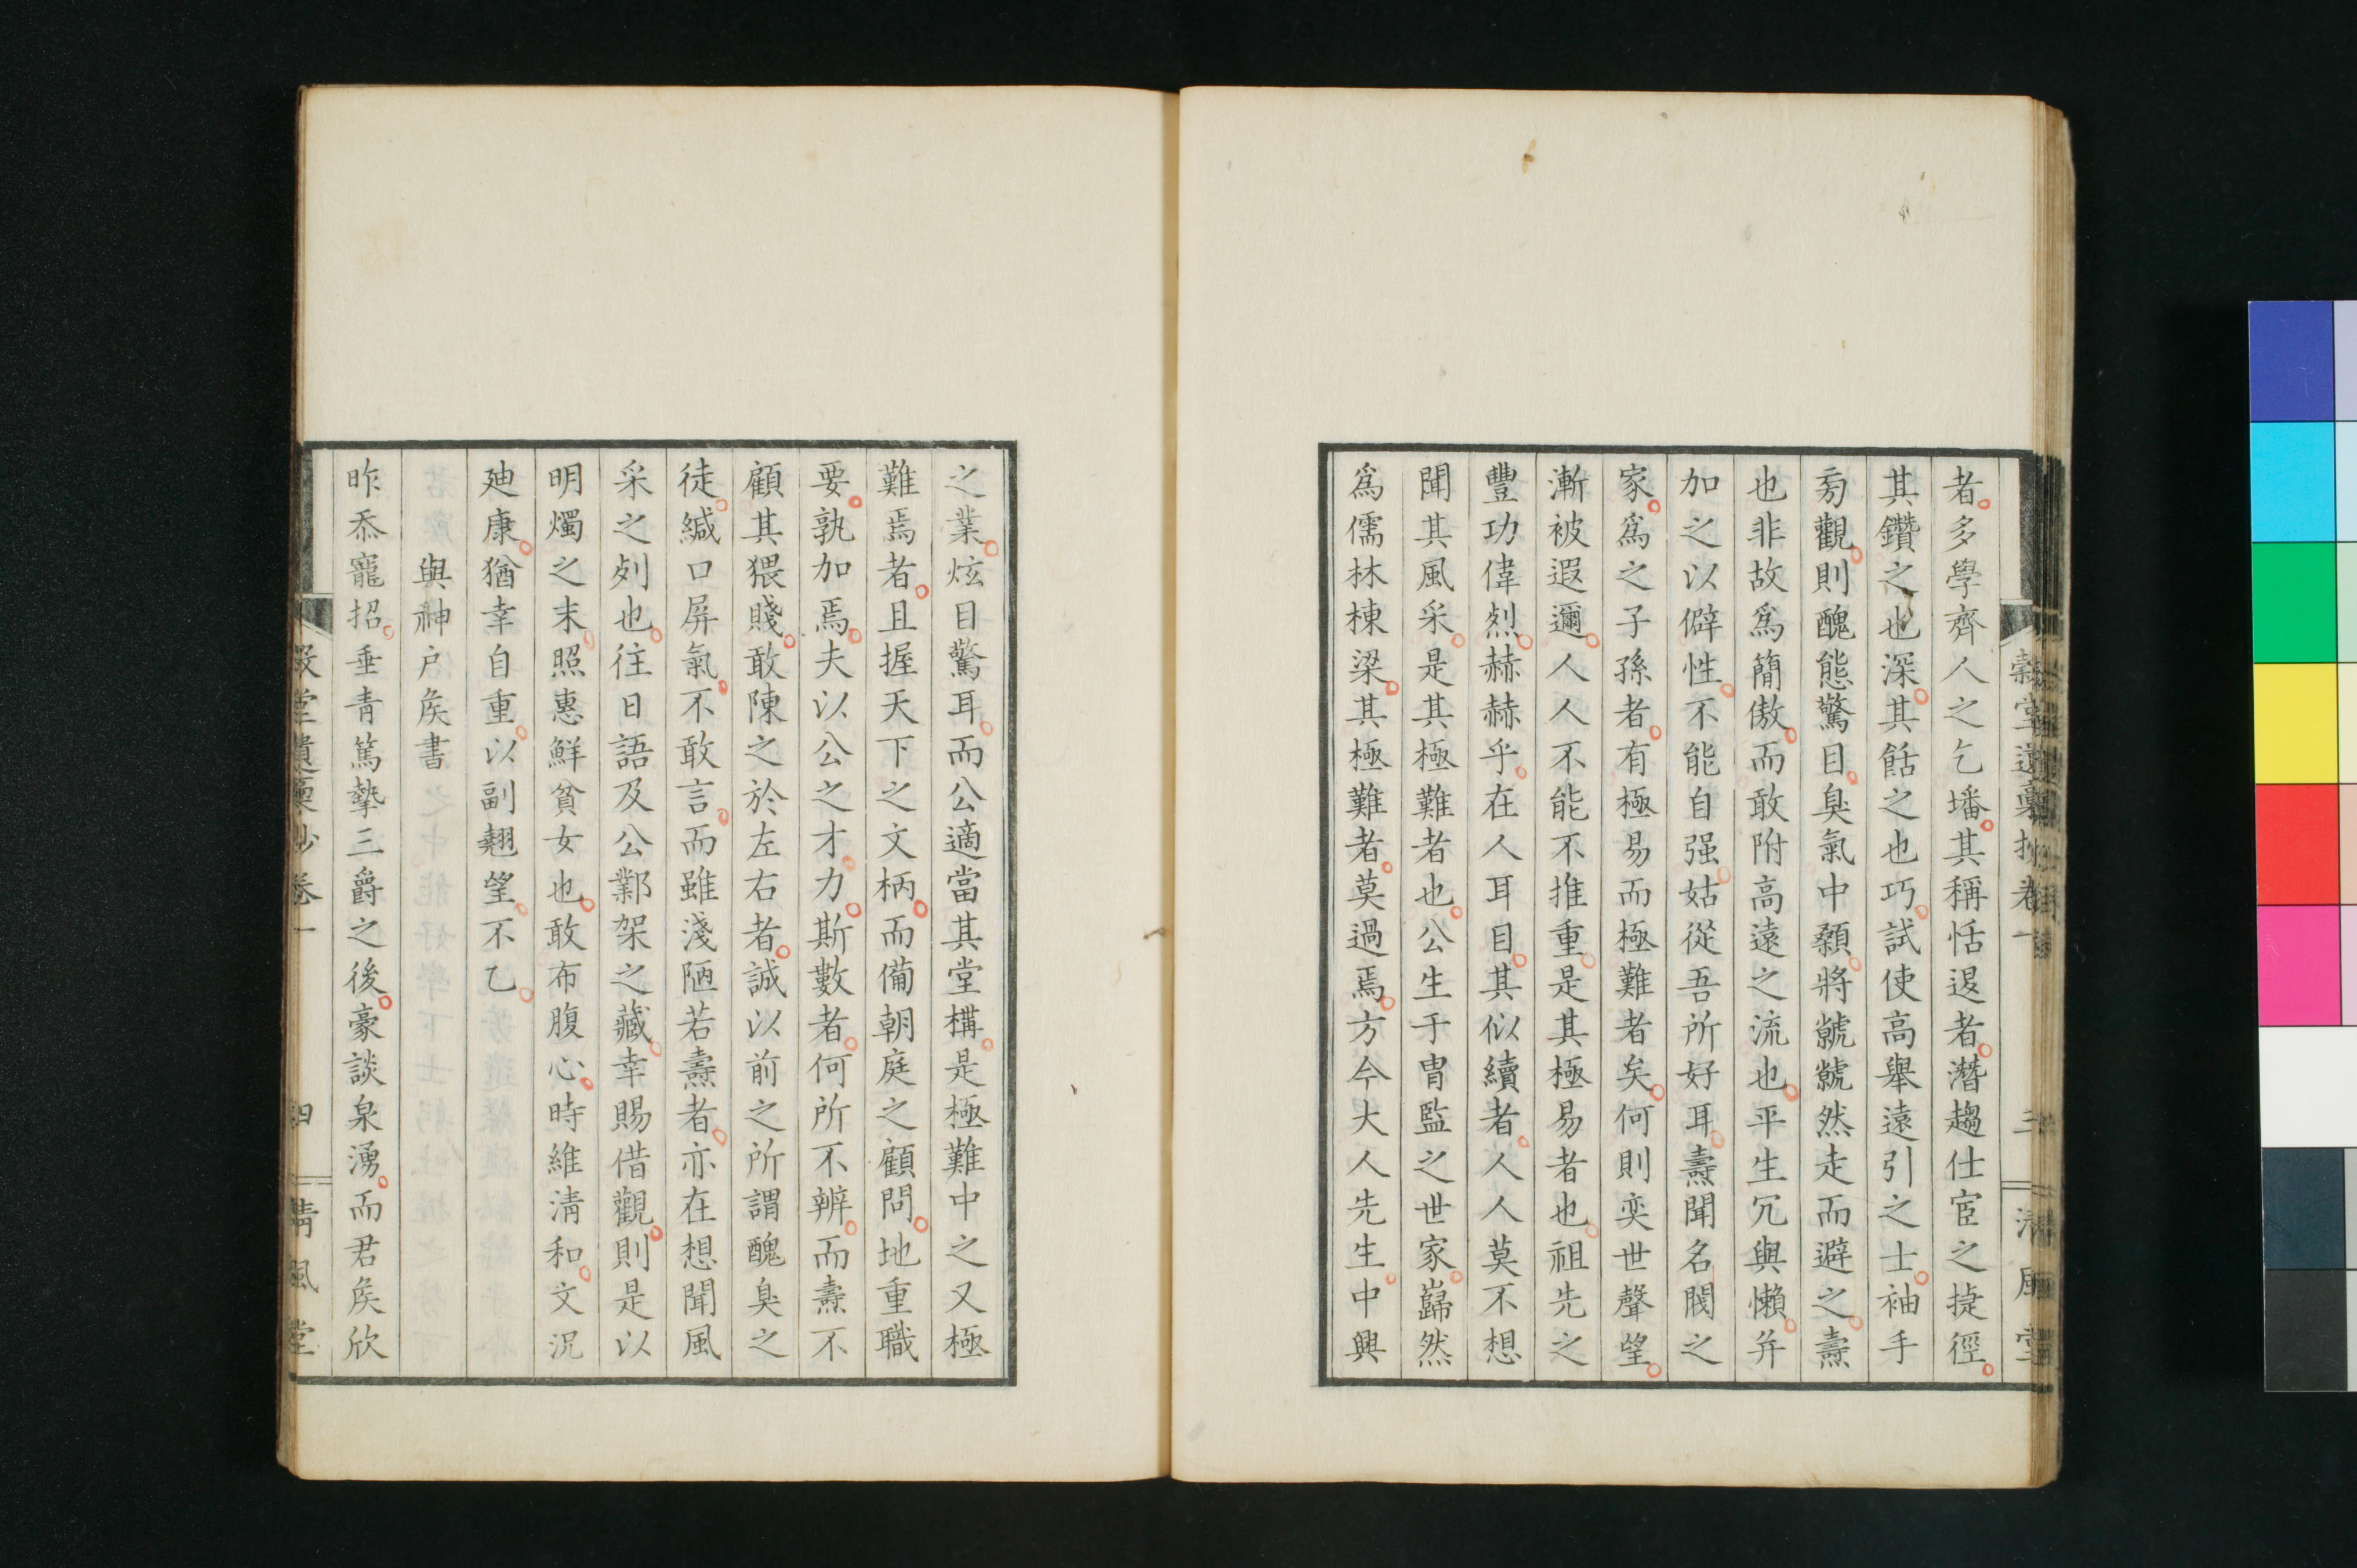 者多學齊人之乞墦其稱恬退者潛趨仕宦之捷徑
其鑽之也深其餂之也巧試使高舉遠引之士袖手
旁觀則醜態驚目臭氣中顙將虩虩然走而避之燾
也非故爲簡傲而敢附高遠之流也平生冗與懶并
加之以僻性不能自强姑從吾所好耳燾聞名閥之
家爲之子孫者有極易而極難者矣何則奕世聲望
漸被遐邇人人不能不推重是其極易者也祖先之
豐功偉烈赫赫乎在人耳目其似續者人人莫不想
聞其風采是其極難者也公生于冑監之世家巋然
爲儒林棟梁其極難者莫過焉方今大人先生中興
之業炫目驚耳而公適當其堂構是極難中之又極
難焉者且握天下之文柄而備朝庭之顧問地重職
要孰加焉夫以公之才力斯數者何所不辨而燾不
顧其猥賤敢陳之於左右者誠以前之所謂醜臭之
徒緘口屏氣不敢言而雖淺陋若燾者亦在想聞風
采之列也往日語及公鄴架之藏幸賜借觀則是以
明燭之末照惠鮮貧女也敢布腹心時維淸和文況
廸康猶幸自重以副翹望不乙
與神戸矦書
昨忝寵招垂青篤摯三爵之後豪談泉湧而君矦欣
榖堂遺稾抄卷一
三
清風堂
榖堂遺稾抄卷一
四
清風堂